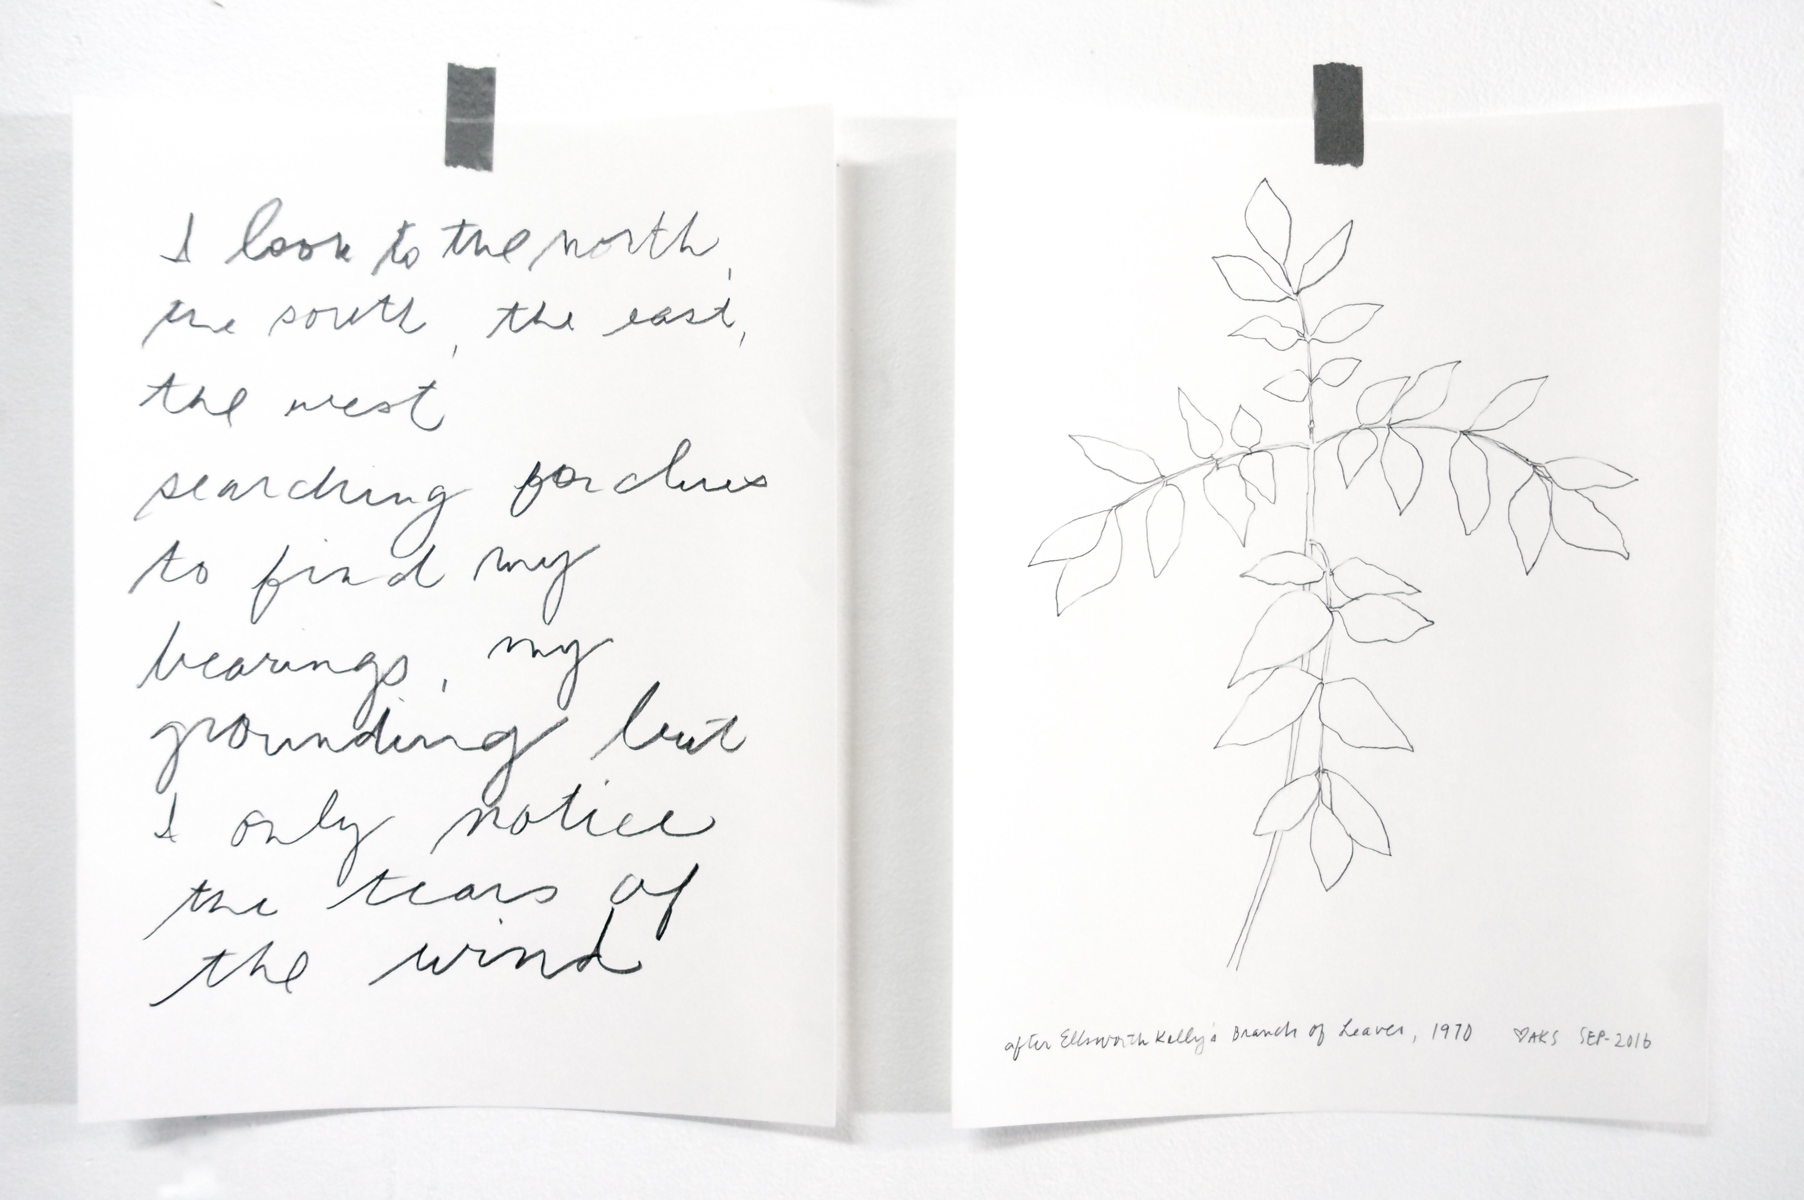 I look to the north,
the south, the east,
the west
searching for clues
to find my
bearings, my
grounding but
I only notice
the tears of
the wind
after Ellsworth Kelly's Branch of Leaves, 1970 ♡AKS SEP-2016